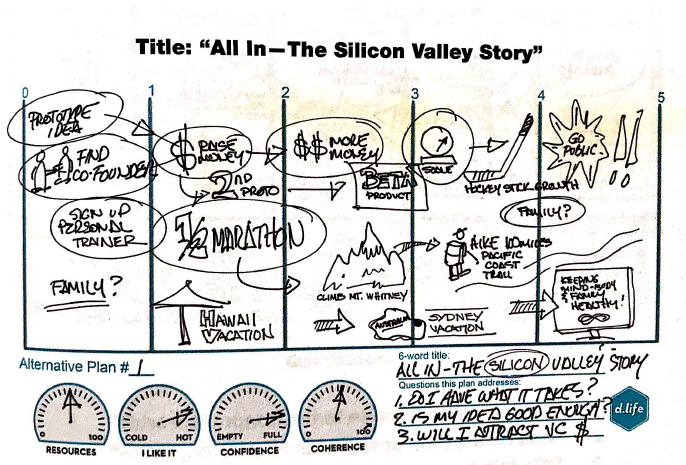 Title: "All In—The Silicon Valley Story"
0 1 2 3 4 5
PROTOTYPE
IDEA
1+1 FIND
CO-FOUNDER
SIGN UP
PERSONAL
TRAINER
FAMILY?
$ RAISE
MONEY
2ND
PROTO
1/2 MARATHON
HAWAII
VACATION
$$ MORE
MONEY
BETA
PRODUCT
CLIMB MT. WHITNEY
AUSTRALIA
SCALE
HIKE
PACIFIC
COAST
TRAIL
SYDNEY
VACATION
HOCKEY STICK GROWTH
FAMILY?
GO
PUBLIC
!!
KEEPING
MIND-BODY
& FAMILY
HEALTHY!
Alternative Plan # 1
0 100
RESOURCES
COLD HOT
I LIKE IT
EMPTY FULL
CONFIDENCE
0 100
COHERENCE
6-word title:
ALL IN-THE SILICON VALLEY STORY
Questions this plan addresses:
1. DO I HAVE WHAT IT TAKES?
2. IS MY IDEA GOOD ENOUGH?
3. WILL I ATTRACT VC $
d.life